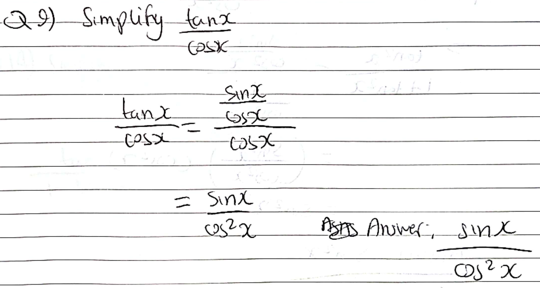 Q 9) Simplify tanx/cosx
tanx/cosx = (sinx/cosx)/cosx
= sinx/cos²x Answer: sinx/cos²x